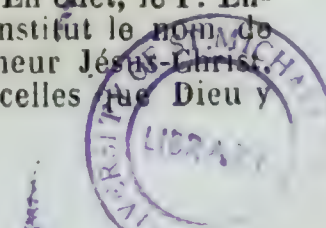 En effet, le P. En-
nstitut le nom de
neur Jésus-Christ.
celles que Dieu y
VERSITY OF ST. MICHA
LIBRARY